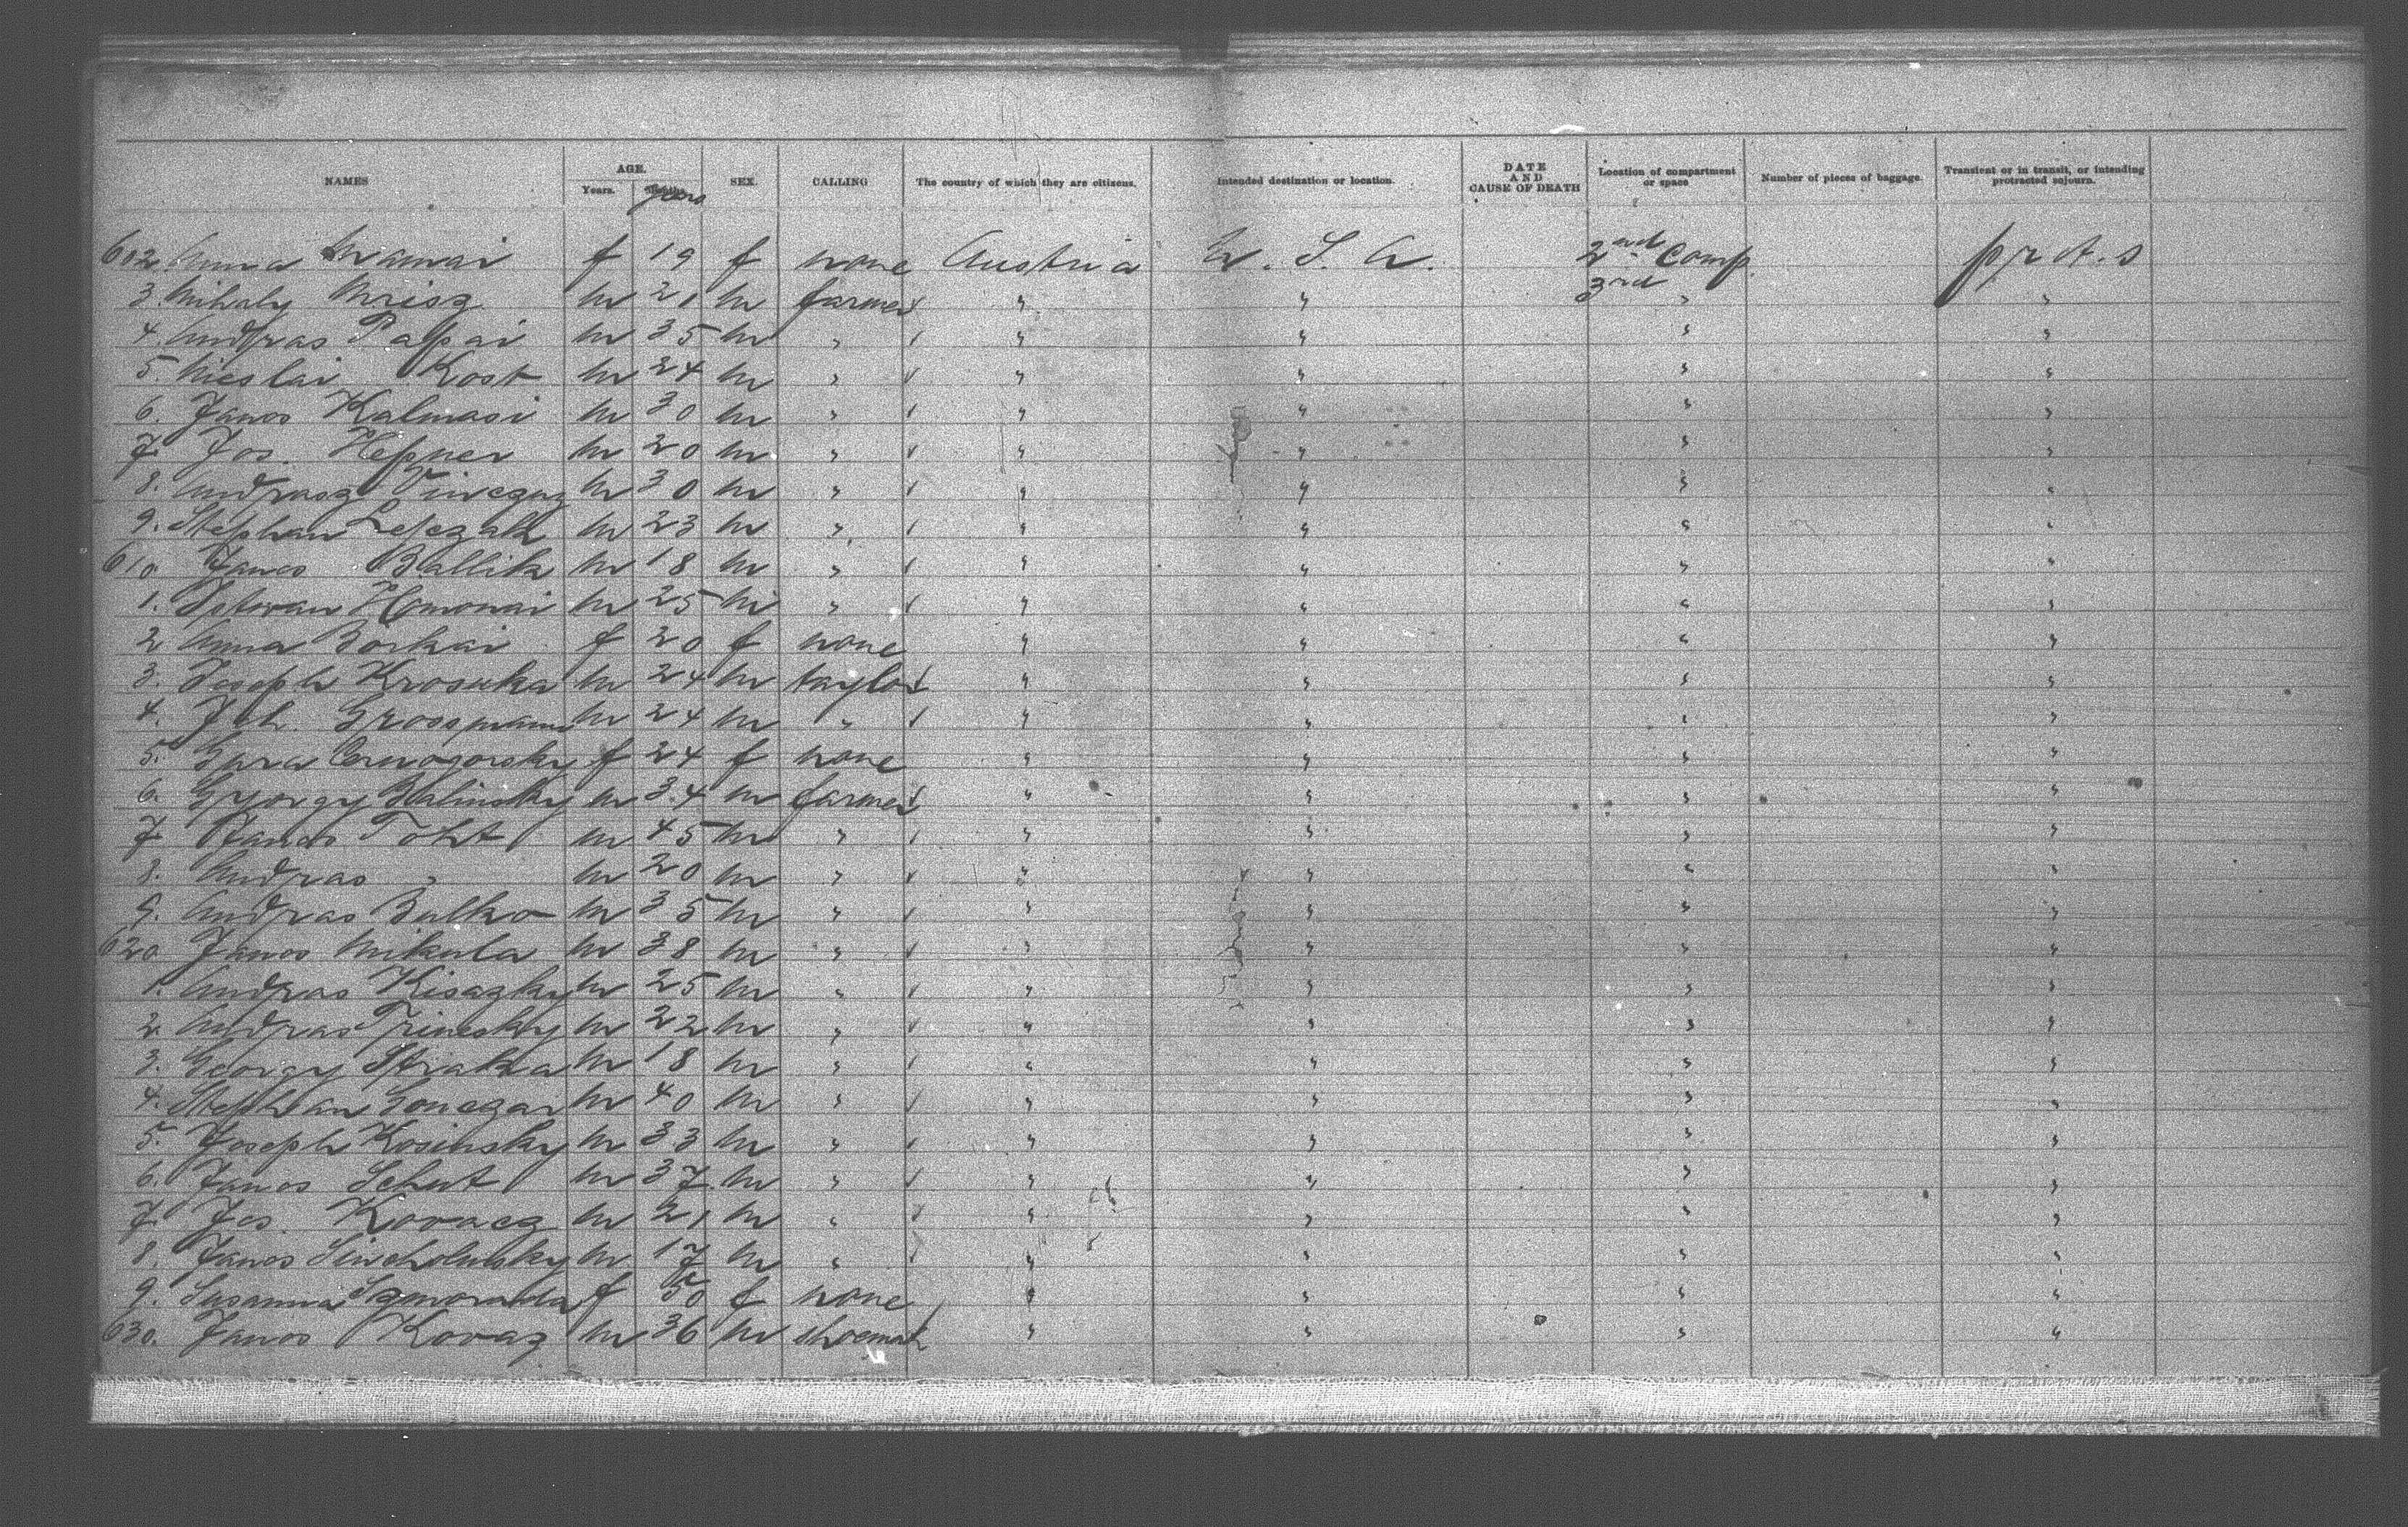 NAMES AGE. Years. Months Years SEX. CALLING The country of which they are citizens. Intended destination or location. DATE AND CAUSE OF DEATH Location of compartment or space Number of pieces of baggage. Transient or in transit, or intending protracted sojourn.
602. Anna f 19 f none Austria U. S. A. 2nd Comp. pr A. s
3. Mihaly m 21 m farmer " " 3rd " "
4. Andras Palpai m 35 m " " " " "
5. Nicolai Kost m 24 m " " " " "
6. Janos Kalmasi m 30 m " " " " "
7 Jos. Hepner m 20 m " " " " "
8. Andrasz Vinczaz m 30 m " " " " "
9. Stephan Lepczak m 23 m " " " " "
610 Janos Ballik m 18 m " " " " "
1. Istwan Homonai m 25 m " " " " "
2 Anna Borkai f 20 f none " " " "
3. Joseph Krosuka m 24 m taylor " " " "
4. Joh. Grossmann m 24 m " " " " "
5. f 24 f none " " " "
6. Gyorgy Balinsky m 34 m farmer " " " "
7 Janos Toht m 45 m " " " " "
8. Andras " m 20 m " " " " "
9. Andras Bulko m 35 m " " " " "
620 Janos Mikula m 38 m " " " " "
1. Andras Kisazky m 25 m " " " " "
2. Andras m 22 m " " " " "
3. Georgy Straka m 18 m " " " " "
4. Stephan Gonczar m 40 m " " " " "
5. Joseph Kosinsky m 33 m " " " " "
6. Janos Schut m 37 m " " " " "
7 Jos. Kovacz m 21 m " " " " "
8. Janos m 17 m " " " " "
9. Susanna f 50 f none " " " "
630. Janos Kovaz m 36 m shoemak " " " "